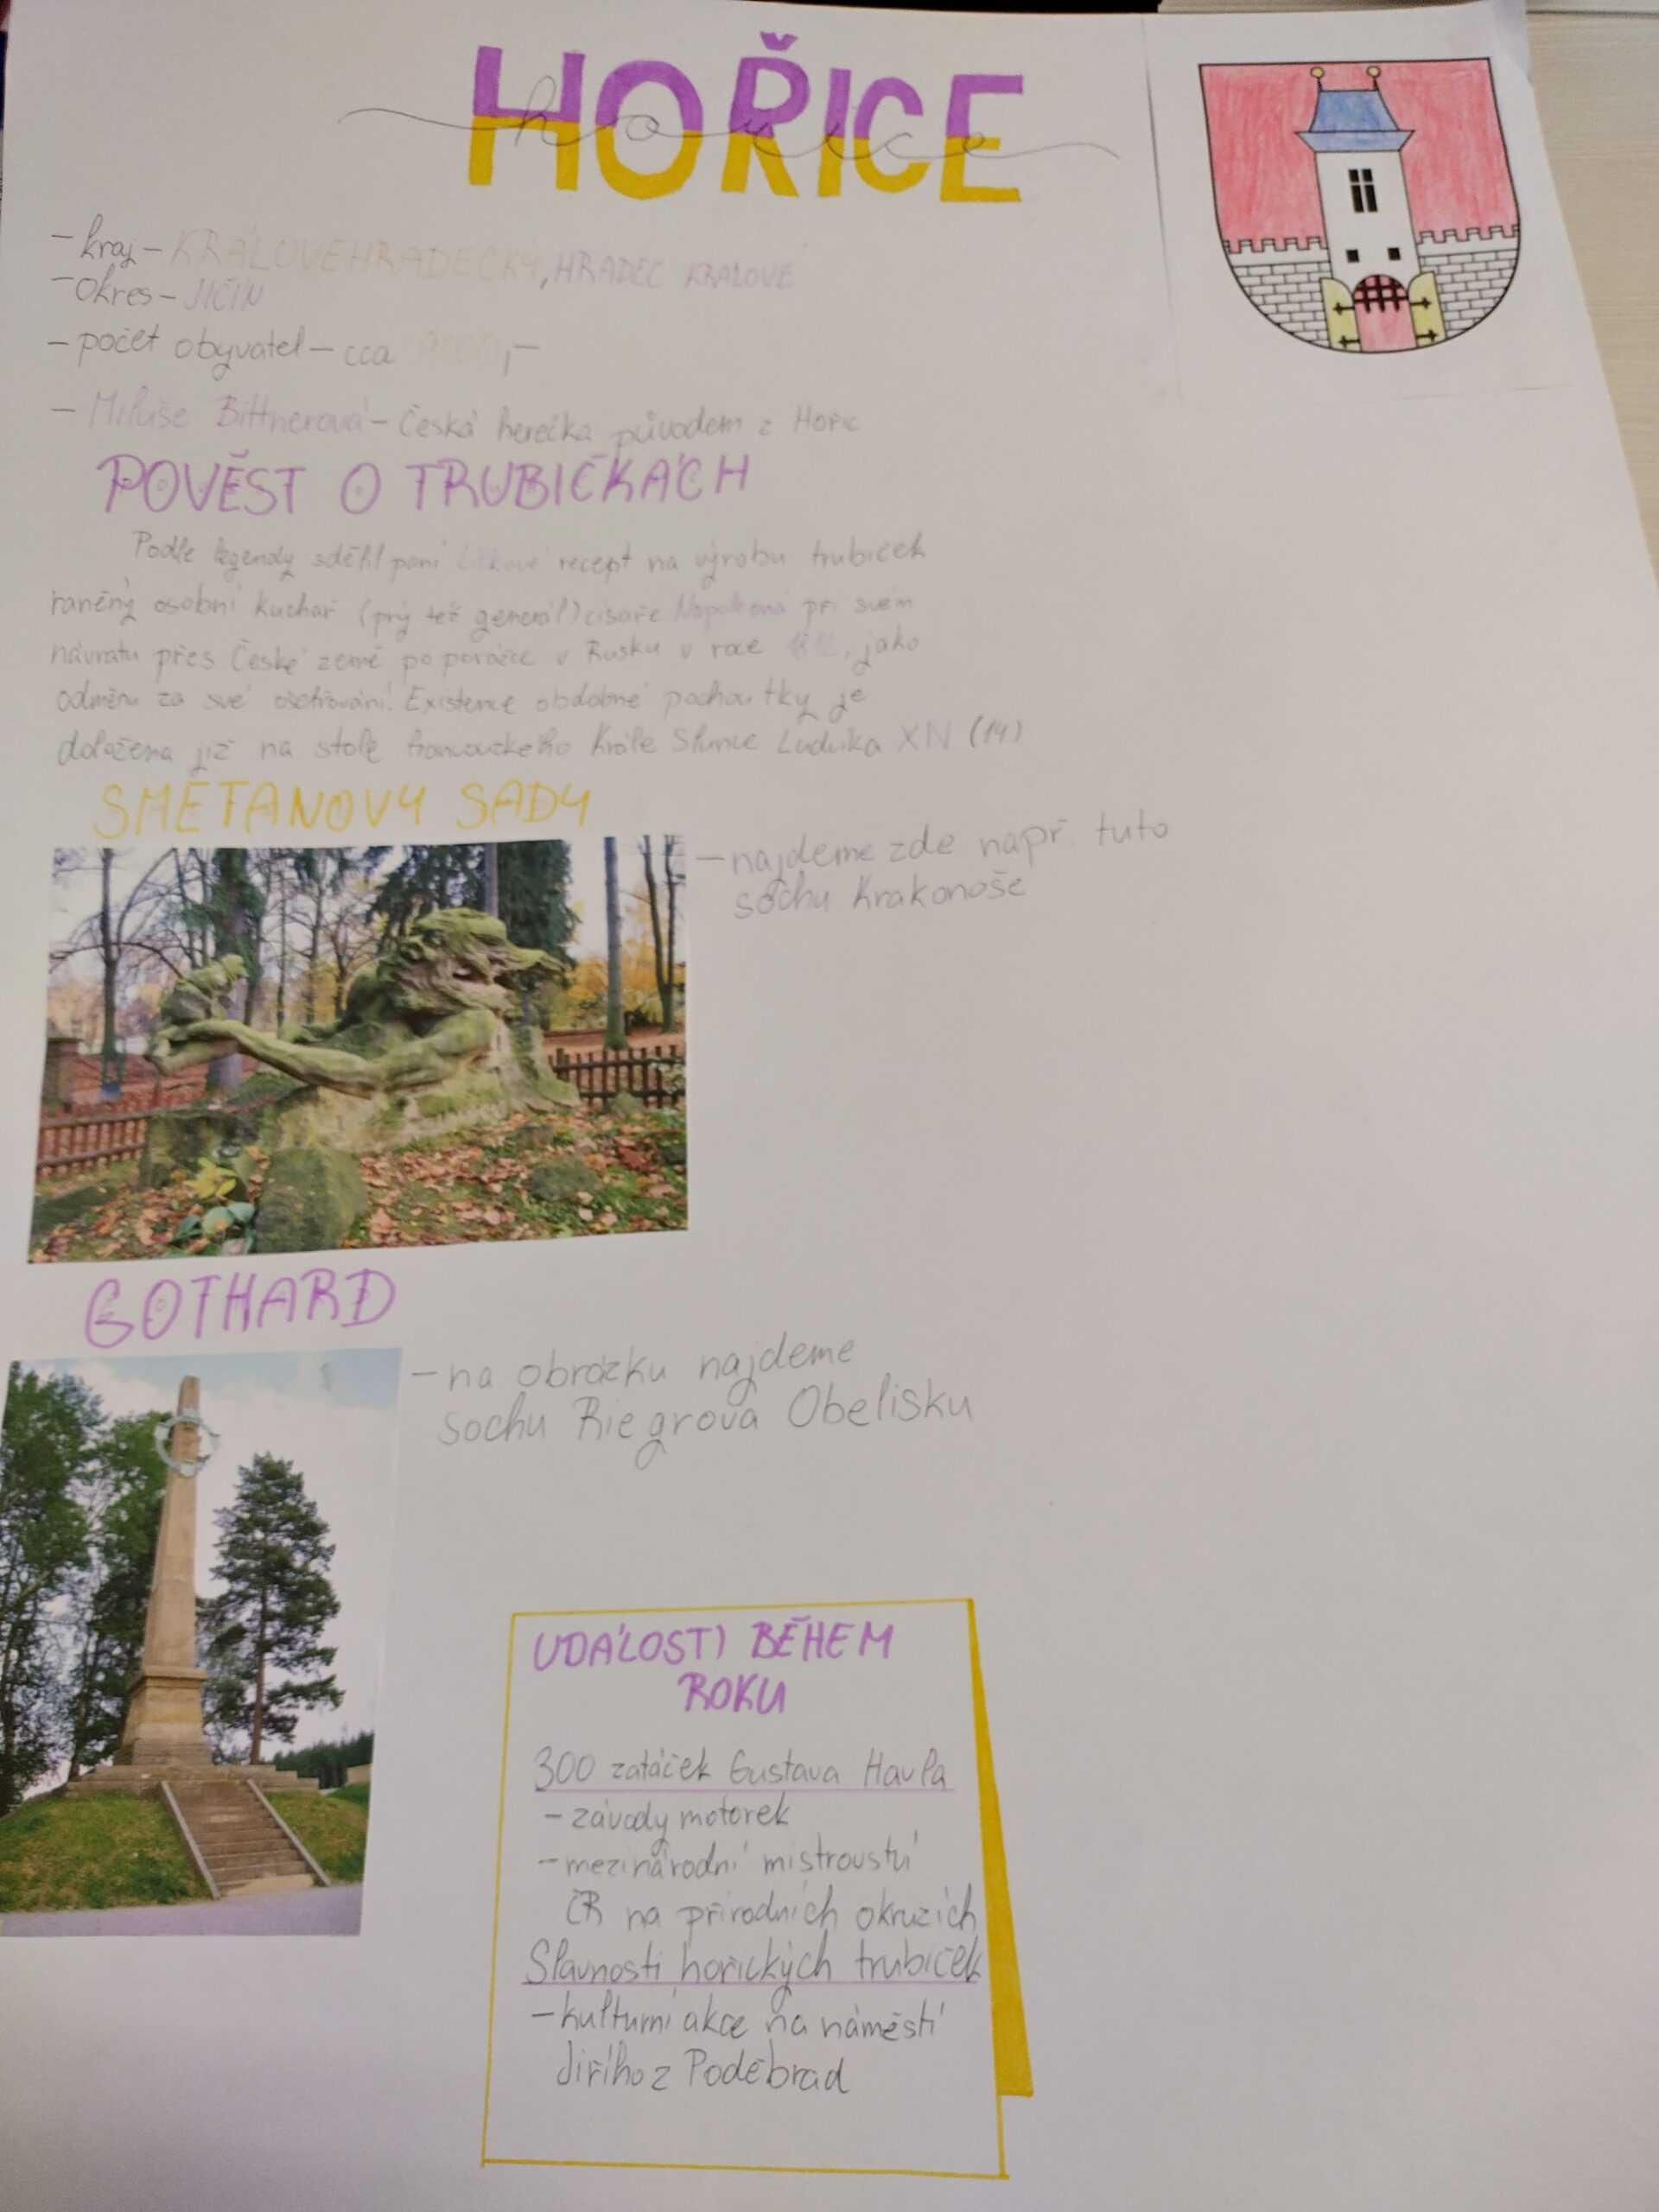 HOŘICE
horice
- kraj - KRÁLOVEHRADECKÝ, HRADEC KRÁLOVÉ
- okres - JIČÍN
- počet obyvatel - cca 9000,-
- Miluše Bittnerová - Česká herečka původem z Hořic
POVĚST O TRUBIČKÁCH
Podle legendy sdělil paní Líčkové recept na výrobu trubiček
raněný osobní kuchař (prý též generál) císaře Napoleona při svém
návratu přes České země po porážce v Rusku v roce 1812, jako
odměnu za své ošetřování. Existence obdobné pochoutky je
doložena již na stole francouzkého krále Slunce Ludvíka XIV (14)
SMETANOVY SADY
- najdeme zde např. tuto
sochu Krakonoše
GOTHARD
- na obrázku najdeme
sochu Riegrova Obelisku
UDÁLOSTI BĚHEM
ROKU
300 zatáček Gustava Havla
- závody motorek
- mezinárodní mistrovství
ČR na přírodních okruzích
Slavnosti hořických trubiček
- kulturní akce na náměstí
Jiřího z Poděbrad